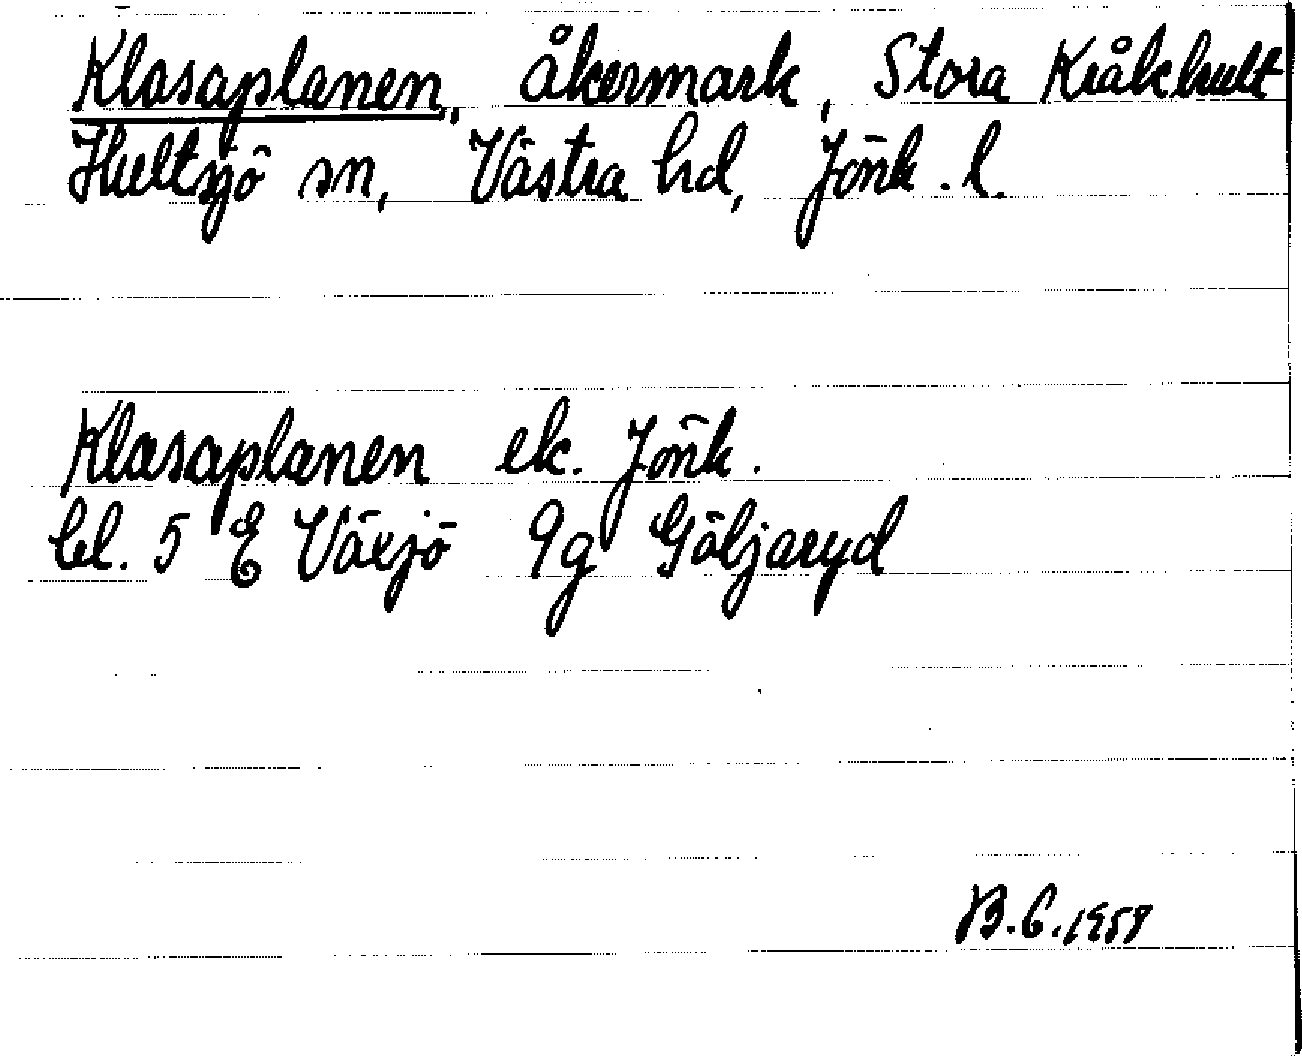 Klasaplanen, åkermark, Stora Kråkhult
Hultsjö sn, Västra hd, Jönk. l.
Klasaplanen ek. Jönk.
bl. 5 E Växjö 9g Göljaryd
B.C. 1958